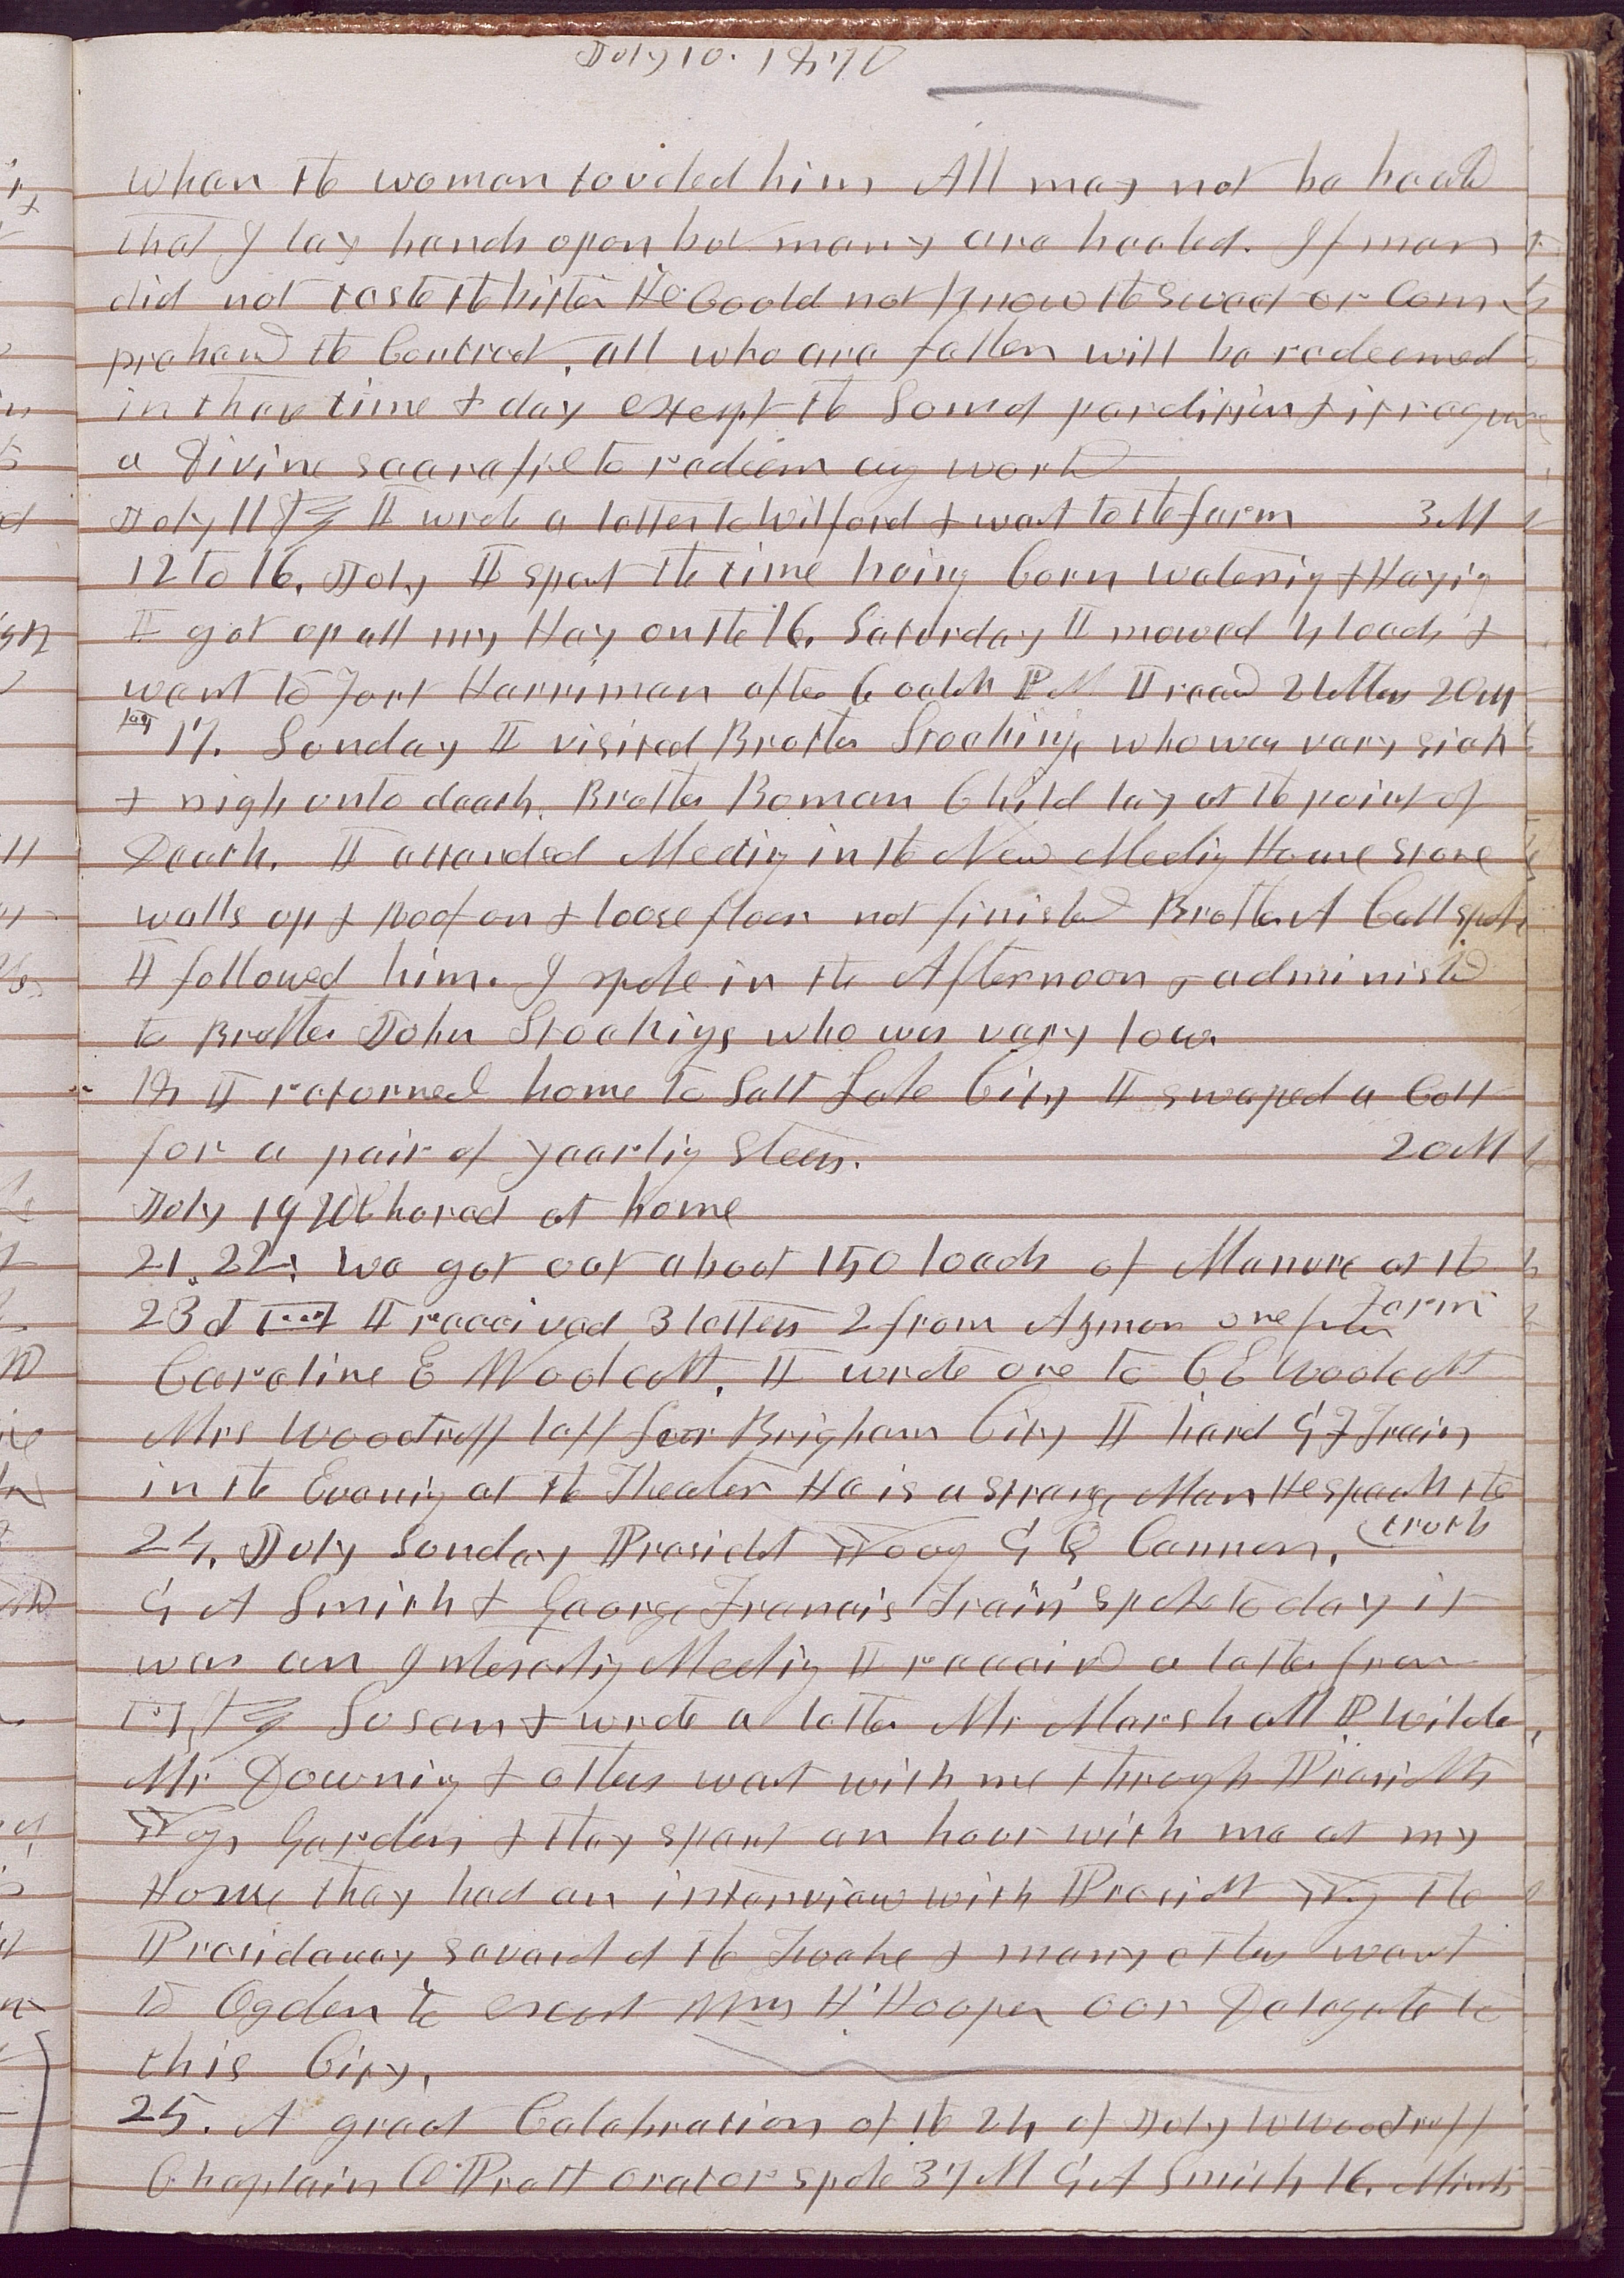 July 10. 1870
when the woman touched him All may not be heald
that I lay hands upon but many are healed. If man
did not taste the bitter He Could not know the sweet or Com
prehend the Contrast, all who are fallen will be redeemed
in thare time & day except the Sons of perdition & it requires
a Divine sacrafice to redeem any world
July 11 I wrote a letter to Wilford & went to the farm 3 M
12 to 16. July I spent the time hoing Corn watering & Haying
I got up all my Hay on the 16. Saturday I mowed 4 loads &
went to Fort Harriman after 6 oclok P M I read 2 letters 20 M
17. Sunday I visited Brother Stocking, who was vary sick
& nigh unto death. Brother Boman Child lay at the point of
Death. I attended Meeting in the New Meeting House stone
walls up & Roof on & loose floor not finished Brother A Call spoke
I followed him. I spoke in the Afternoon & administed
to Brother John Stockings who was vary low.
18 I returned home to Salt Lake City I swaped a Colt
for a pair of yearling Steers. 20 M
July 19 20 Chored at home
21. 22. we got out about 150 loads of Manure at the
Farm
23d I received 3 letters 2 from Azmon one from
Caroline E Woodcott, I wrote one to C E Woodcott
Mrs Woodruff left for Brigham City I hard G F Train
in the Evening at the Theater He is a strange Man He speaks the
truth
24. July Sunday Presidet Young G Q Cannon,
G A Smith & George Francis Train spoke to day it
was an Interesting Meeting I receivd a letter from
Susan & wrote a letter Mr Marshall P Wilder,
Mr Downing & others went with me through Presidets
Youngs Garden & they spent an hour with me at my
House they had an interview with Presidet Young the
Presidency several of the Twelve & many others went
to Ogden to escort Wm H. Hooper our Delegate to
this City.
25. A great Celebration of the 24 of July W Woodruff
Chaplain O Pratt orator spoke 37 M G A Smith 16. Minuts